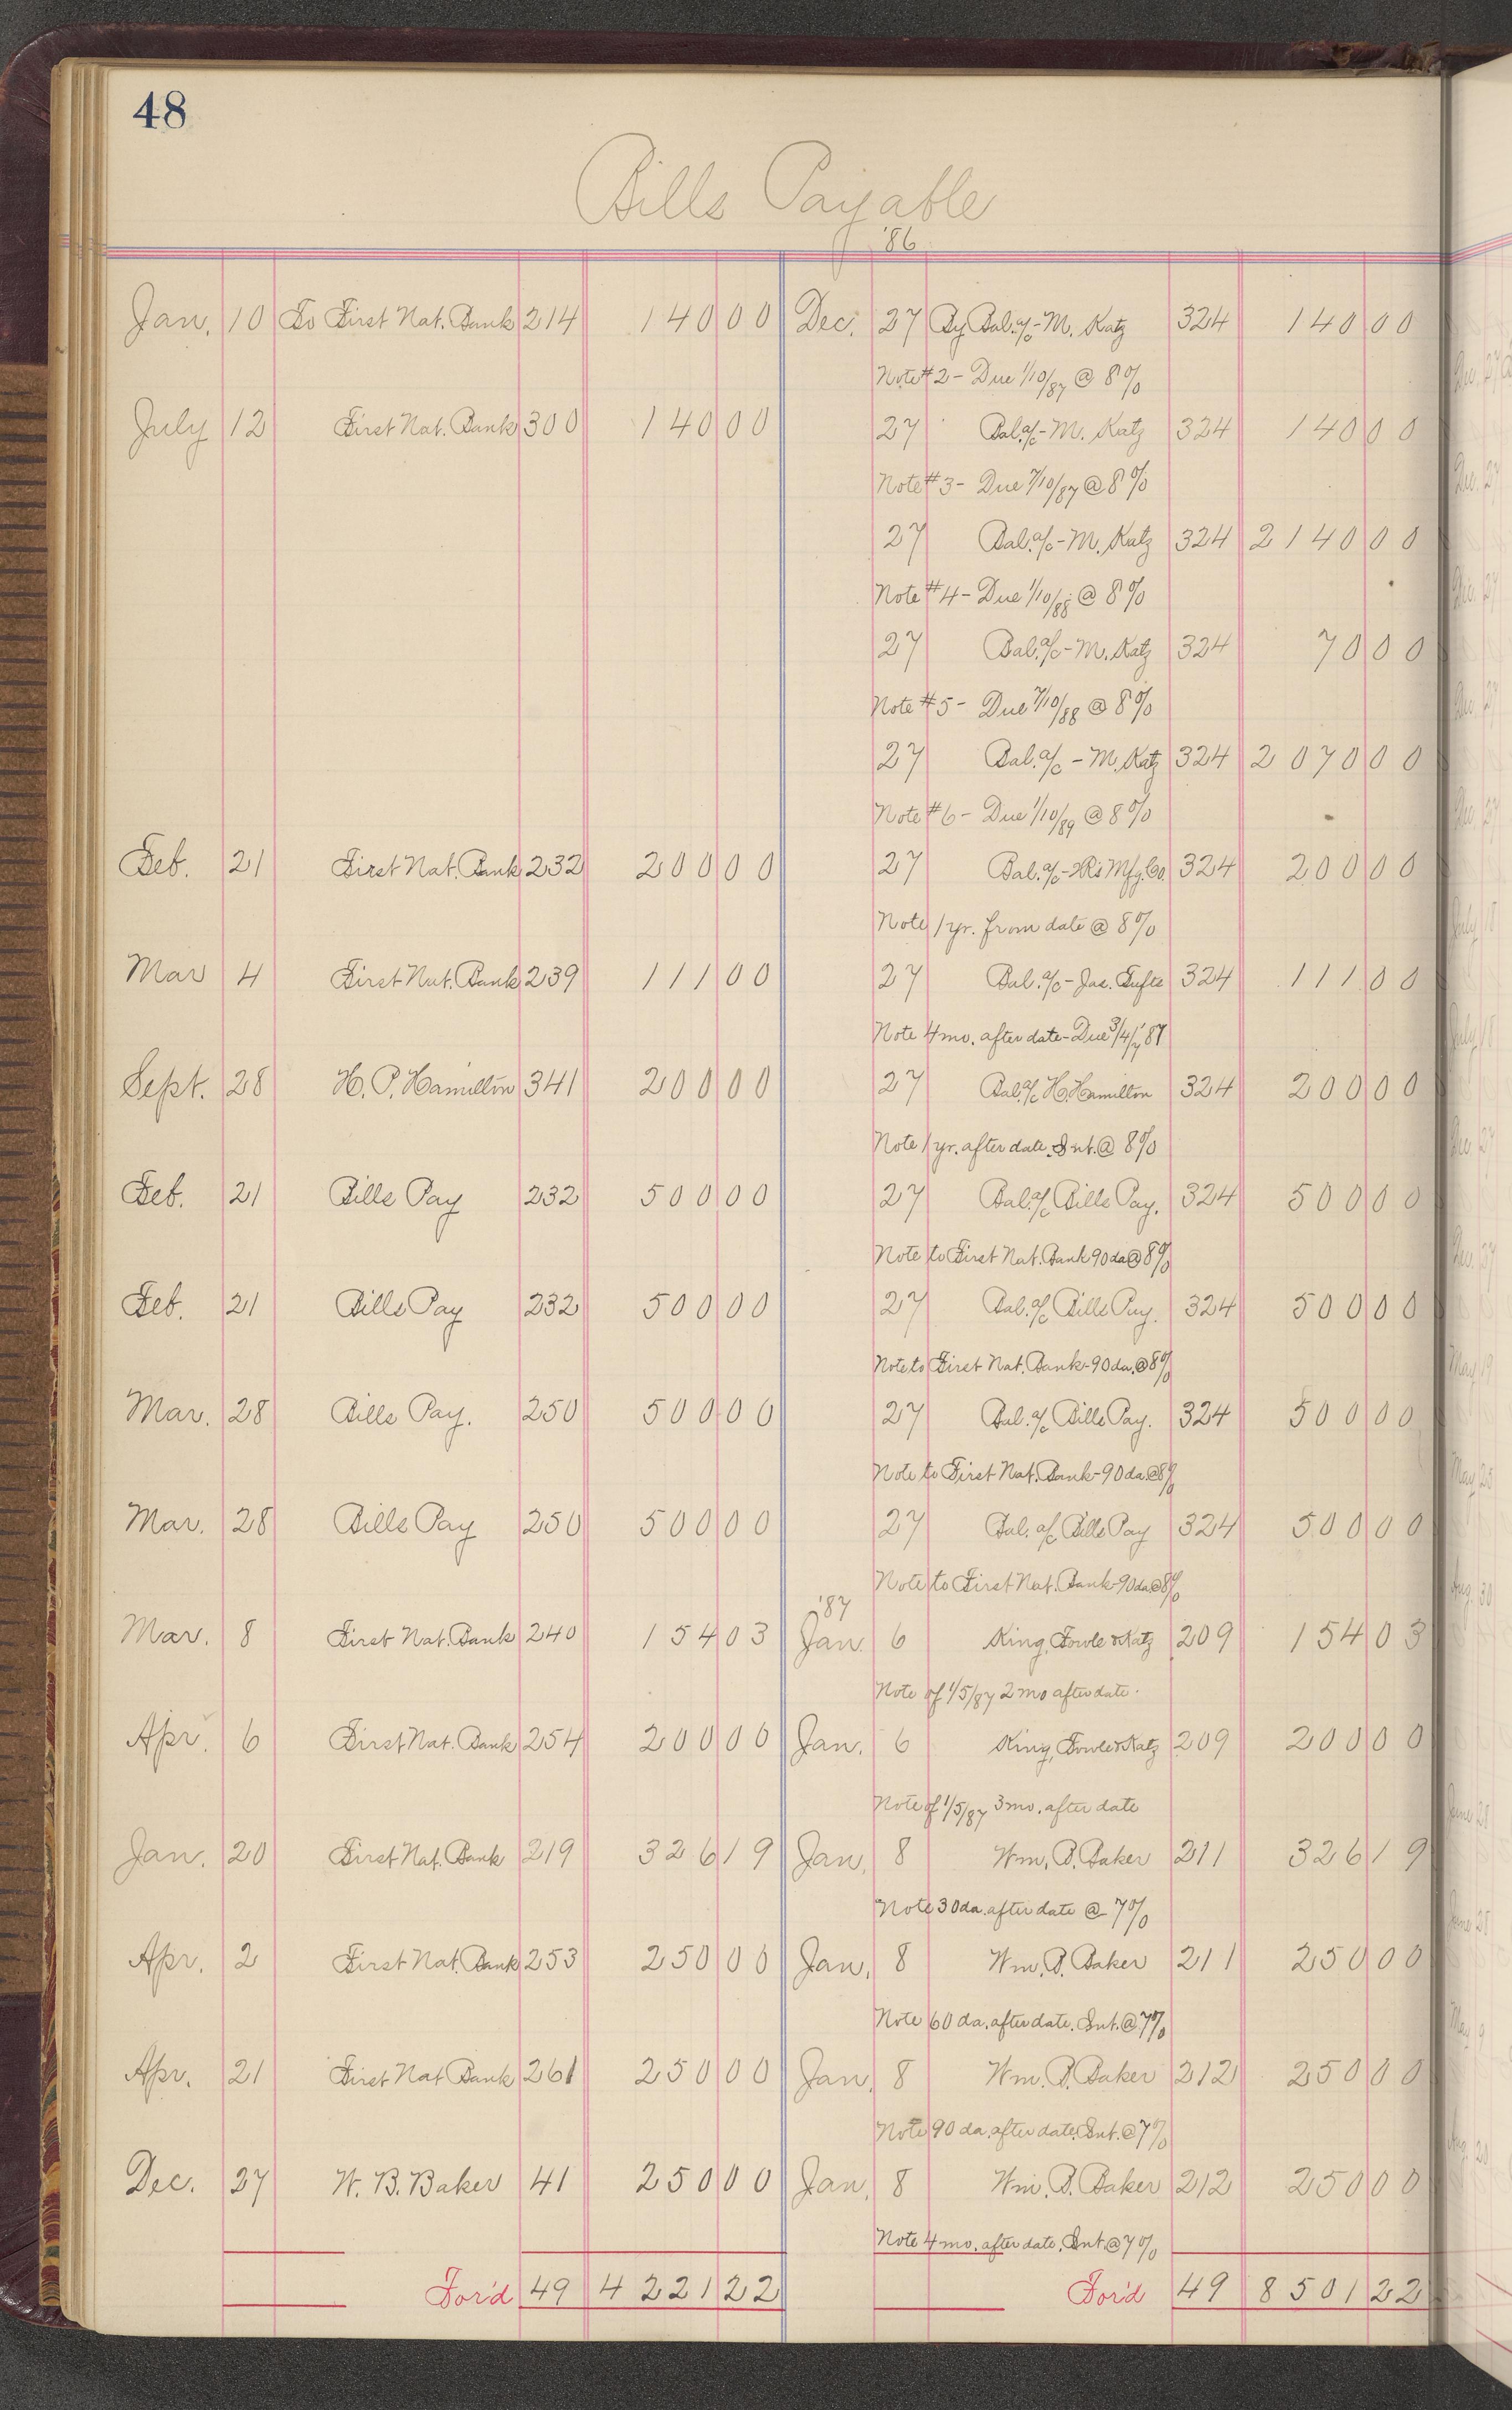 48
Bills Payable
'86
Jan. 10 To First Nat. Bank 214 140 00 Dec. 27 By Bal. a/c - M. Katz 324 140 00
Note #2 - Due 1/10/87 @ 8%
July 12 First Nat. Bank 300 140 00 27 Bal. a/c - M. Katz 324 140 00
Note #3 - Due 7/10/87 @ 8%
27 Bal. a/c - M. Katz 324 2140 00
Note #4 - Due 1/10/88 @ 8%
27 Bal. a/c - M. Katz 324 70 00
Note #5 - Due 7/10/88 @ 8%
27 Bal. a/c - M. Katz 324 2070 00
Note #6 - Due 1/10/89 @ 8%
Feb. 21 First Nat. Bank 232 200 00 27 Bal. a/c - Mfg. Co. 324 200 00
Note 1 yr. from date @ 8%
Mar 4 First Nat. Bank 239 111 00 27 Bal. a/c - Jas. Tufts 324 111 00
Note 4 mo. after date - Due 3/4/7 '87
Sept. 28 H. P. Hamilton 341 200 00 27 Bal. a/c H. Hamilton 324 200 00
Note 1 yr. after date. Int. @ 8%
Feb. 21 Bills Pay 232 500 00 27 Bal. a/c Bills Pay. 324 500 00
Note to First Nat. Bank 90 da @ 8%
Feb. 21 Bills Pay 232 500 00 27 Bal. a/c Bills Pay. 324 500 00
Note to First Nat. Bank - 90 da. @ 8%
Mar. 28 Bills Pay. 250 500 00 27 Bal. a/c Bills Pay. 324 500 00
Note to First Nat. Bank - 90 da. @ 8%
Mar. 28 Bills Pay 250 500 00 27 Bal. a/c Bills Pay 324 500 00
Note to First Nat. Bank - 90 da @ 8%
'87
Mar. 8 First Nat. Bank 240 154 03 Jan. 6 King, Fowle & Katz 209 154 03
Note of 1/5/87 2 mo after date.
Apr. 6 First Nat. Bank 254 200 00 Jan. 6 King, Fowle & Katz 209 200 00
Note of 1/5/87 3 mo. after date
Jan. 20 First Nat. Bank 219 326 19 Jan. 8 Wm. B. Baker 211 326 19
Note 30 da. after date @ 7%
Apr. 2 First Nat. Bank 253 250 00 Jan. 8 Wm. B. Baker 211 250 00
Note 60 da. after date. Int. @ 7%
Apr. 21 First Nat Bank 261 250 00 Jan. 8 Wm. B. Baker 212 250 00
Note 90 da. after date. Int. @ 7%
Dec. 27 W. B. Baker 41 250 00 Jan. 8 Wm. B. Baker 212 250 00
Note 4 mo. after date. Int. @ 7%
For'd 49 4221 22 For'd 49 8501 22